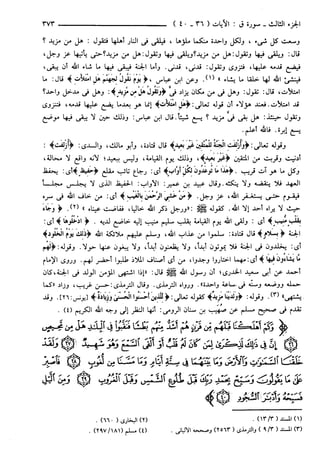 الجزء الثالث - سورة ق : الآيات (٣٦ - ٤٠) ٣٧٣
وسعت كل شيء ، ولكل واحدة منكما ملؤها ، فيلقى في النار أهلها فتقول : هل من مزيد ؟
قال : ويلقى فيها وتقول : هل من مزيد؟ ويلقى فيها وتقول : هل من مزيد؟ حتى يأتيها عز وجل،
فيضع قدمه عليها، فتزوى وتقول : قدنى ، قدنى . وأما الجنة فيبقى فيها ما شاء الله أن يبقى،
فينشئ الله لها خلقا ما يشاء » (١) . وعن ابن عباس ، ﴿ يَوْمَ نَقُولُ لِجَهَنَّمَ هَلِ امْتَلأْتِ ﴾ قال : ما
امتلأت، قال : تقول : وهل في من مكان يزاد في ﴿ وَتَقُولُ هَلْ مِن مَّزِيدٍ ﴾ : وهل في مدخل واحد؟
قد امتلأت. فعند هؤلاء أن قوله تعالى: ﴿ هَلِ امْتَلأْتِ ﴾ إنما هو بعدما يضع عليها قدمه ، فتنزوى
وتقول حينئذ : هل بقى في مزيد ؟ يسع شيئاً. قال ابن عباس : وذلك حين لا يبقى فيها موضع
يسع إبرة. فالله أعلم .
وقوله تعالى: ﴿ وَأُزْلِفَتِ الْجَنَّةُ لِلْمُتَّقِينَ غَيْرَ بَعِيدٍ ﴾ ، قال قتادة، وأبو مالك ، والسدى : ﴿ وَأُزْلِفَتِ ﴾ :
أدنيت وقربت من المتقين ﴿ غَيْرَ بَعِيدٍ ﴾، وذلك يوم القيامة، وليس ببعيد؛ لأنه واقع لا محالة،
وكل ما هو آت قريب . ﴿ هَذَا مَا تُوعَدُونَ لِكُلِّ أَوَّابٍ ﴾ أي : رجاع تائب مقلع ﴿ حَفِيظٍ ﴾ أي: يحفظ
العهد فلا ينقضه ولا ينكثه . وقال عبيد بن عمير : الأواب : الحفيظ الذي لا يجلس مجلساً
فيقوم حتى يستغفر الله، عز وجل. ﴿ مَنْ خَشِيَ الرَّحْمَنَ بِالْغَيْبِ ﴾ أي: من خاف الله في سره
حيث لا يراه أحد إلا الله. كقوله ﷺ : «ورجل ذكر الله خالياً، ففاضت عيناه » (٢). ﴿ وَجَاءَ
بِقَلْبٍ مُّنِيبٍ ﴾ أي : ولقى الله يوم القيامة بقلب سليم منيب إليه خاضع لديه . ﴿ ادْخُلُوهَا ﴾ أي:
الجنة ﴿ بِسَلامٍ ﴾ قال قتادة: سلموا من عذاب الله، وسلم عليهم ملائكة الله ﴿ ذَلِكَ يَوْمُ الْخُلُودِ ﴾
أي: يخلدون في الجنة فلا يموتون أبداً، ولا يظعنون أبداً، ولا يبغون عنها حولا. وقوله: ﴿ لَهُم
مَّا يَشَاءُونَ فِيهَا ﴾ أي: مهما اختاروا وجدوا، من أي أصناف الملاذ طلبوا أحضر لهم. وروى الإمام
أحمد عن أبي سعيد الخدري؛ أن رسول الله ﷺ قال : «إذا اشتهى المؤمن الولد في الجنة، كان
حمله ووضعه وسنه في ساعة واحدة». ورواه الترمذي. وقال الترمذي: حسن غريب، وزاد «كما
يشتهى» (٣). وقوله: ﴿ وَلَدَيْنَا مَزِيدٌ ﴾ كقوله تعالى: ﴿ لِلَّذِينَ أَحْسَنُوا الْحُسْنَى وَزِيَادَةٌ ﴾ [يونس:٢٦]. وقد
تقدم في صحيح مسلم عن صهيب بن سنان الرومي: أنها النظر إلى وجه الله الكريم (٤) .
وَكَمْ أَهْلَكْنَا قَبْلَهُم مِّن قَرْنٍ هُمْ أَشَدُّ مِنْهُم بَطْشًا فَنَقَّبُوا فِي الْبِلَادِ هَلْ مِن مَّحِيصٍ
﴿٣٦﴾ إِنَّ فِي ذَلِكَ لَذِكْرَى لِمَن كَانَ لَهُ قَلْبٌ أَوْ أَلْقَى السَّمْعَ وَهُوَ شَهِيدٌ ﴿٣٧﴾ وَلَقَدْ
خَلَقْنَا السَّمَاوَاتِ وَالْأَرْضَ وَمَا بَيْنَهُمَا فِي سِتَّةِ أَيَّامٍ وَمَا مَسَّنَا مِن لُّغُوبٍ ﴿٣٨﴾ فَاصْبِرْ
عَلَى مَا يَقُولُونَ وَسَبِّحْ بِحَمْدِ رَبِّكَ قَبْلَ طُلُوعِ الشَّمْسِ وَقَبْلَ الْغُرُوبِ ﴿٣٩﴾ وَمِنَ اللَّيْلِ
فَسَبِّحْهُ وَأَدْبَارَ السُّجُودِ ﴿٤٠﴾
(١) المسند (١٣/٣) . (٢) البخارى (٦٦٠) .
(٣) المسند (٩/٣) والترمذى (٢٥٦٣) وصححه الألبانى . (٤) مسلم (٢٩٧/١٨١) .